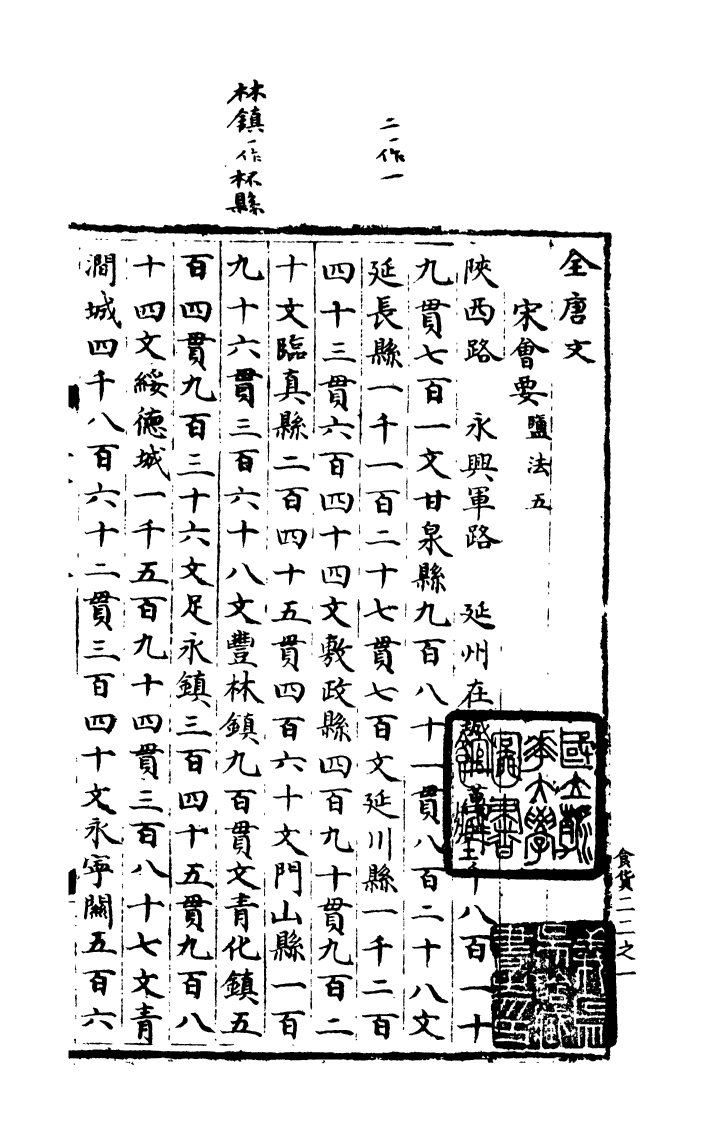 二一作一
林鎮一作杯縣
全唐文
宋會要鹽法五
陝西路 永興軍路 延州在城八百一十
九貫七百一文甘泉縣九百八十一貫八百二十八文
延長縣一千一百二十七貫七百文延川縣一千二百
四十三貫六百四十四文敷政縣四百九十貫九百二
十文臨真縣二百四十五貫四百六十文門山縣一百
九十六貫三百六十八文豐林鎮九百貫文青化鎮五
百四貫九百三十六文足永鎮三百四十五貫九百八
十四文綏德城一千五百九十四貫三百八十七文青
澗城四千八百六十二貫三百四十文永寧關五百六
食貨二二之一
國立清華大學圖書館